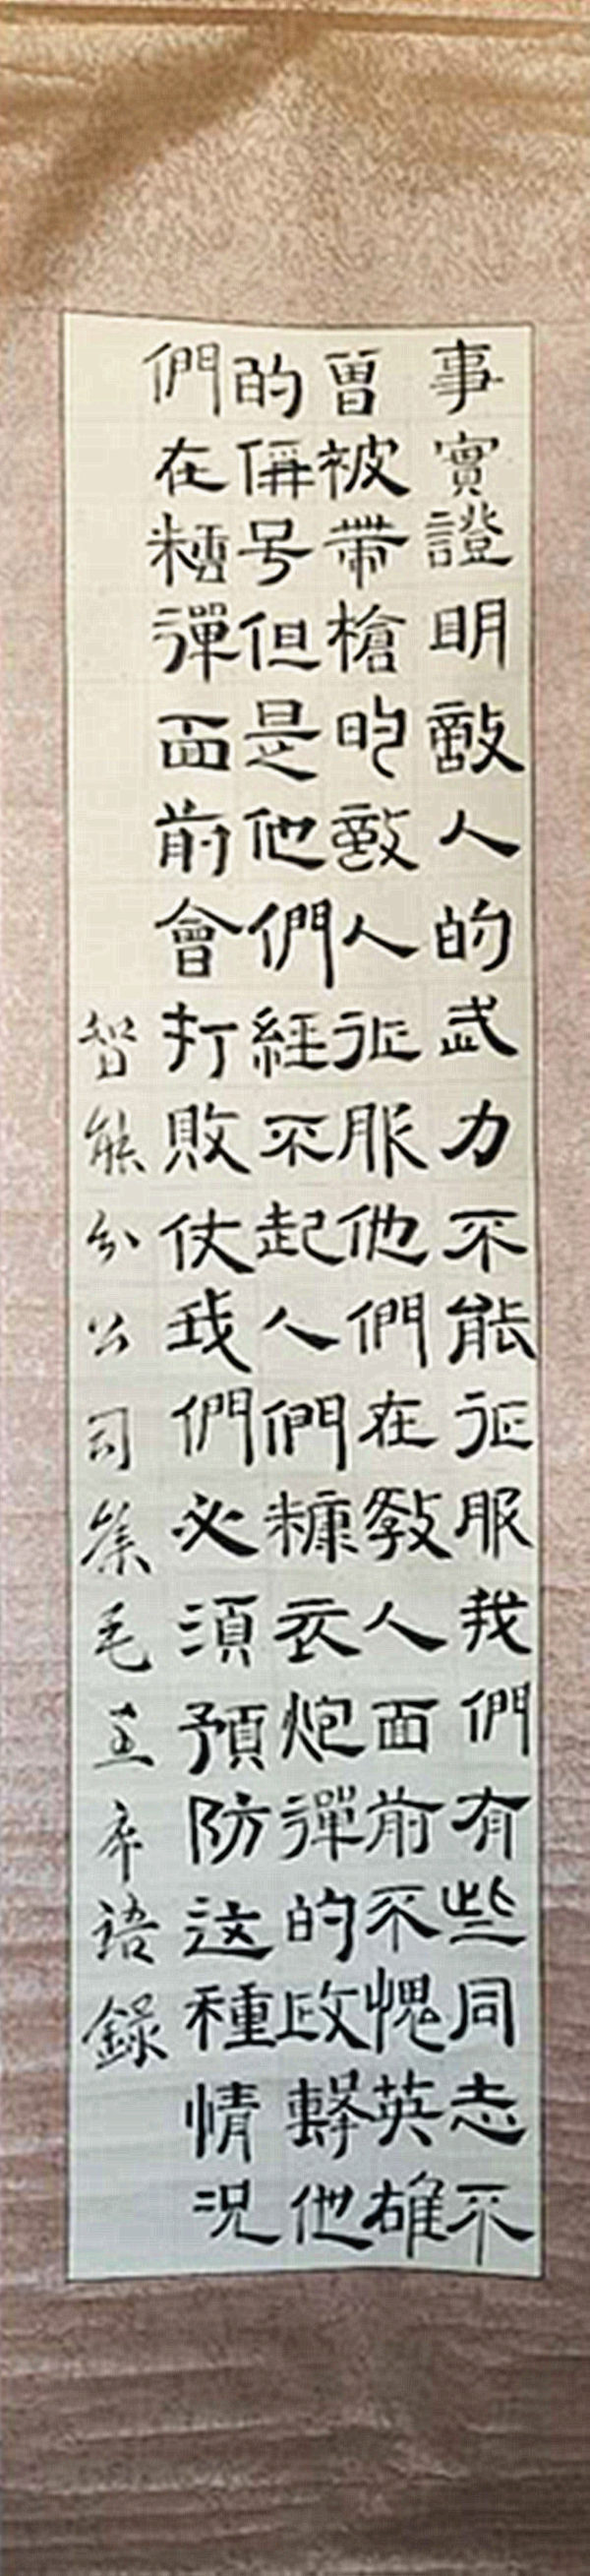 事實證明敵人的武力不能征服我們有些同志不
曾被帶槍的敵人征服他們在敎人面前不愧英雄
的偁号但是他們經不起人們糠衣炮彈的攻擊他
們在糖彈面前會打敗仗我們必須預防这種情況
智能分公司毛主席语錄